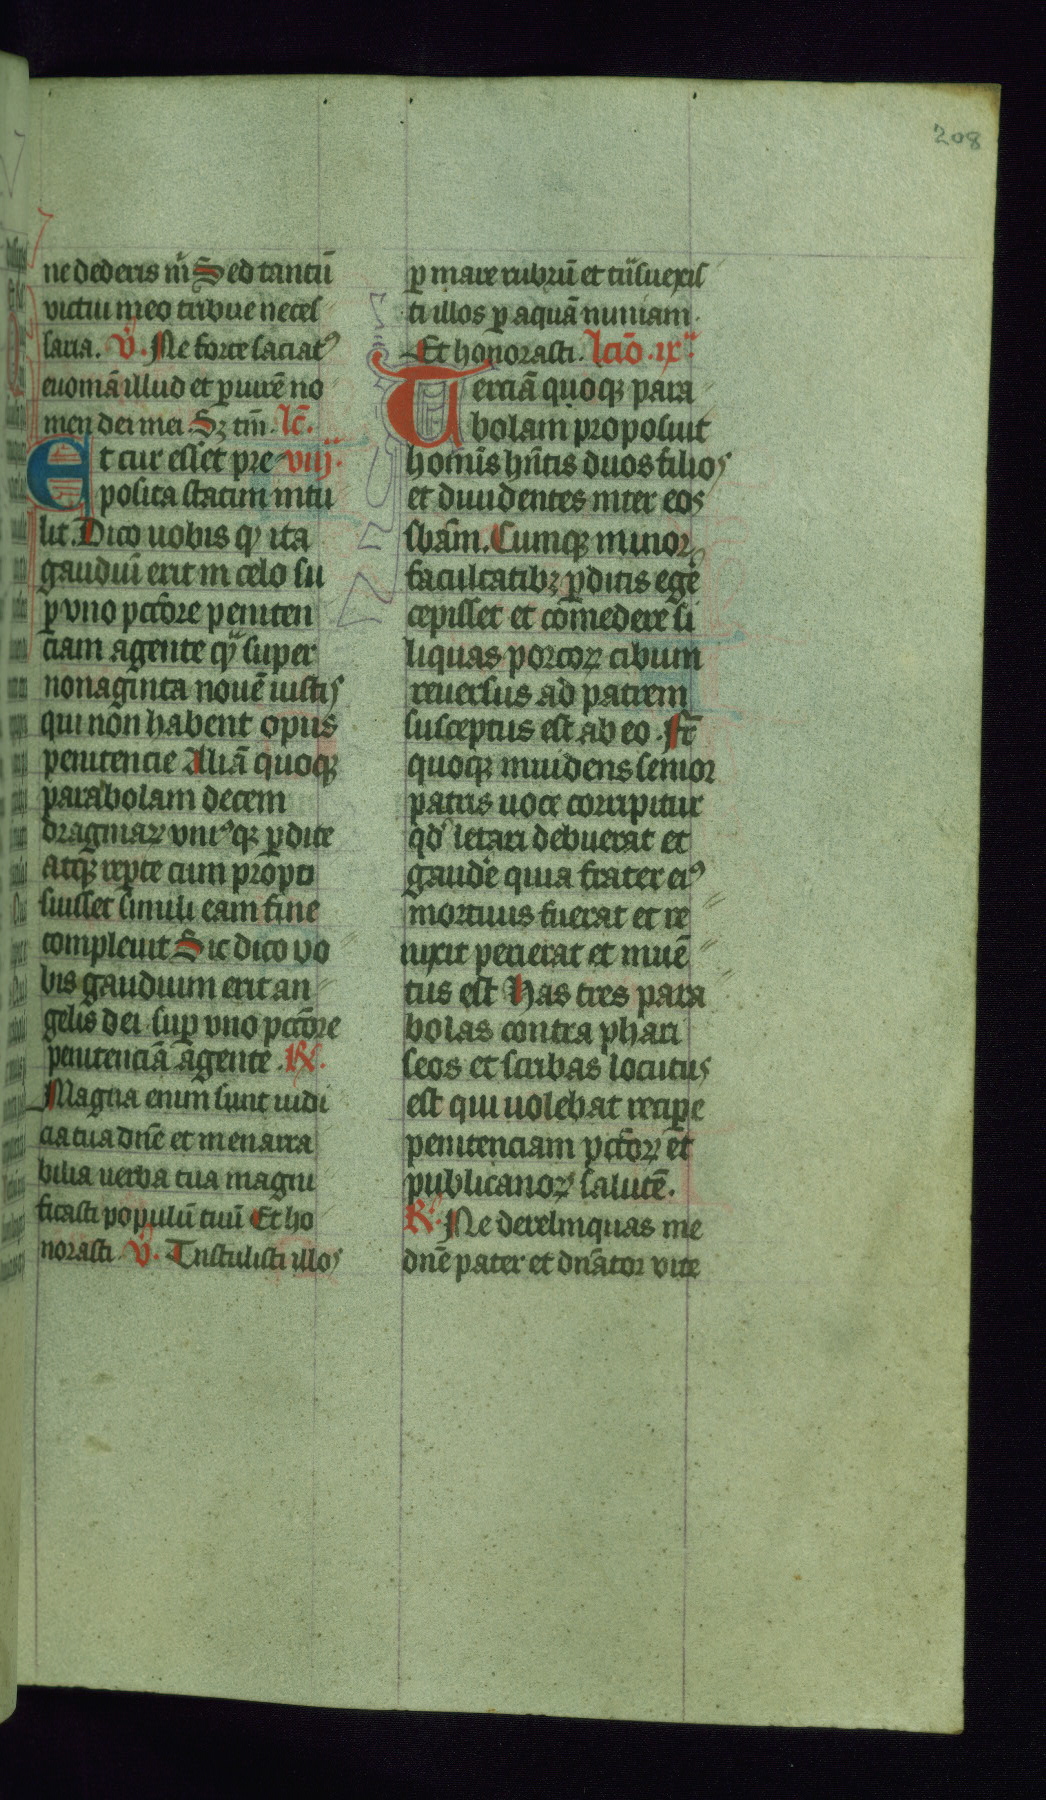 208
ne dederis m̄ Sed tantū
victui meo tribue neces
saria. V̄. Ne forte saciatꝰ
euomā illud et ꝑiurē no
men dei mei. Sꝫ tm̄. lc̄.
Et cur esset pre viij.
posita statim intu
lit. Dico uobis ꝙ ita
gaudiū erit in celo su
ꝑ vno pctōre peniten
ciam agente ꝙ̄ super
nonaginta nouē iustis
qui non habent opus
penitencie Aliā quoqꝫ
parabolam decem
dragmaꝝ vniꝰqꝫ ꝑdite
atqꝫ repte cum propo
suisset simili eam fine
compleuit Sic dico vo
bis gaudium erit an
gelis dei suꝑ vno pctōre
penitenciā agente. R̄.
Magna enim sunt iudi
cia tua dn̄e et inenarra
bilia uerba tua magni
ficasti populū tuū Et ho
norasti. V̄. Tnstulisti illos
ꝑ mare rubrū et tn̄suexis
ti illos ꝑ aquā nimiam.
Et honorasti. lcīo. ix.
Terciā quoqꝫ para
bolam proposuit
homīs hn̄tis duos filios
et diuidentes inter eos
sbām. Cumqꝫ minor
facultatibꝫ ꝑditis egē
cepisset et cōmedere si
liquas porcoꝝ cibum
reuersus ad patrem
susceptus est ab eo. Fr̄
quoqꝫ inuidens senior
patris uoce corripitur
qd' letari debuerat et
gaudē quia frater eiꝰ
mortuus fuerat et re
uixit perierat et inuē
tus est Has tres para
bolas contra phari
seos et scribas locutus
est qui uolebat reciꝑe
penitenciam pctōꝝ et
publicanoꝝ salutē.
R̄. Ne derelinquas me
dn̄e pater et dn̄ator vite